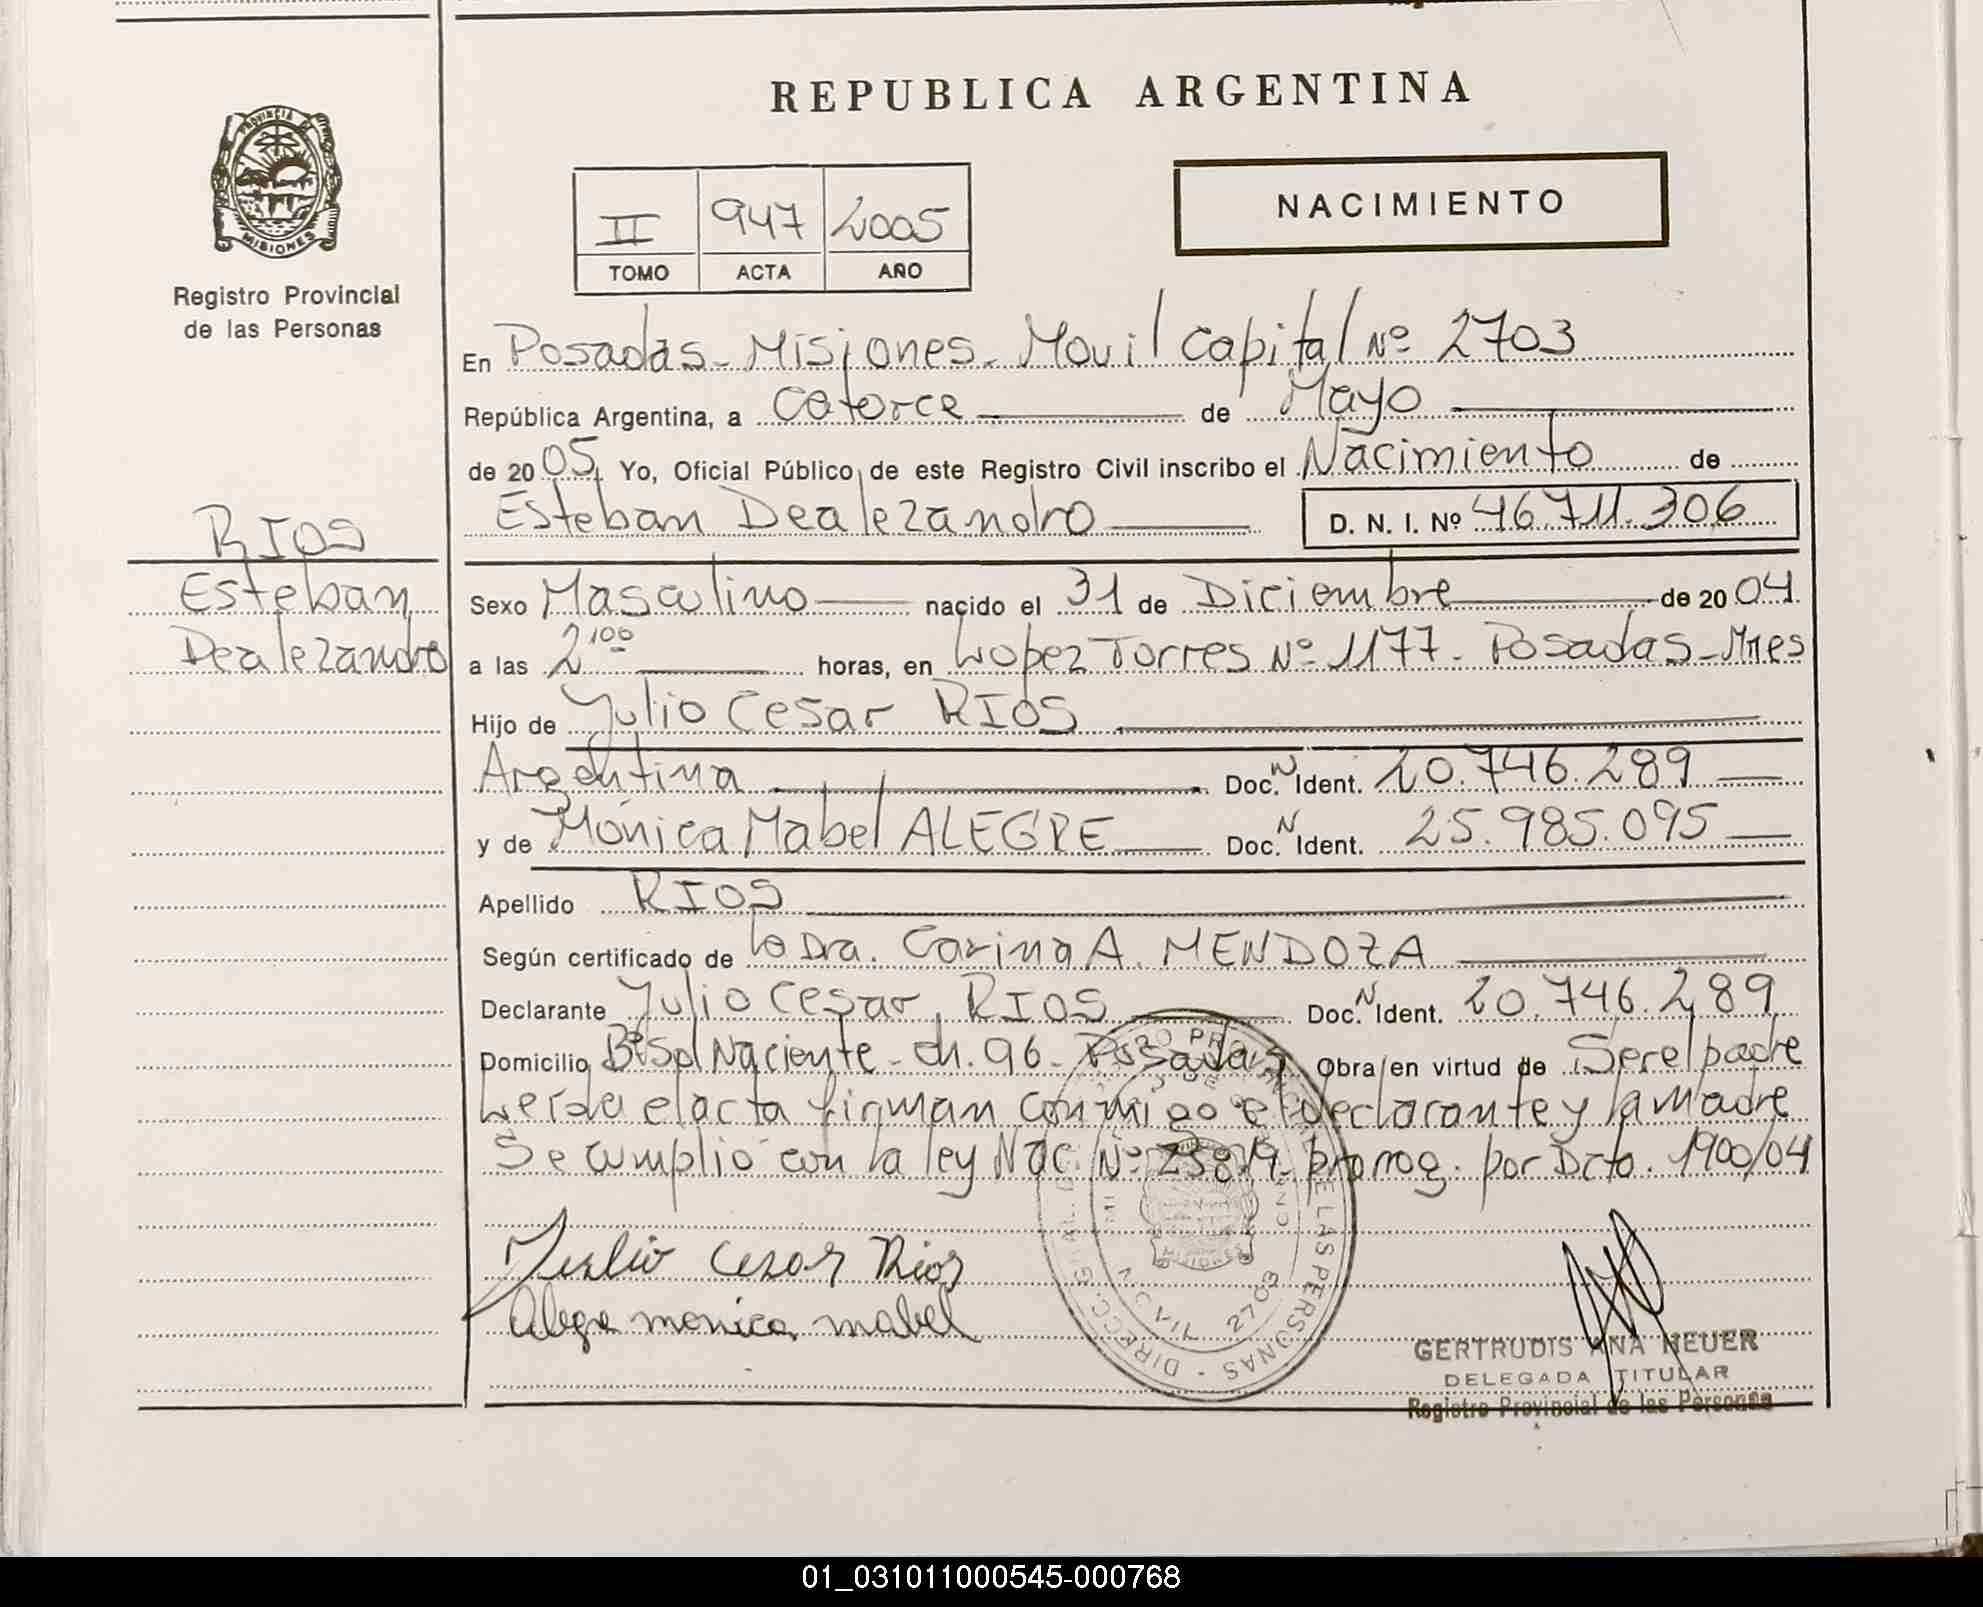 REPUBLICA ARGENTINA
PROVINCIA DE
MISIONES
Registro Provincial
de las Personas
II 947 2005
TOMO ACTA AÑO
NACIMIENTO
En Posadas - Misiones - Movil Capital Nº 2703
República Argentina, a Catorce de Mayo
de 2005. Yo, Oficial Público de este Registro Civil inscribo el Nacimiento de
Esteban Dealezandro D. N. I. Nº 46.711.306
RIOS
Esteban
Dealezandro
Sexo Masculino nacido el 31 de Diciembre de 2004
a las 2'00 horas, en Lopez Torres Nº 1177 - Posadas - Mnes
Hijo de Julio Cesar RIOS
Argentina Doc. N Ident. 20.746.289
y de Mónica Mabel ALEGRE Doc. N Ident. 25.985.095
Apellido RIOS
Según certificado de la Dra. Carina A. MENDOZA
Declarante Julio Cesar RIOS Doc. N Ident. 20.746.289
Domicilio Bº Sol Naciente - Ch. 96 - Posadas Obra en virtud de Ser el padre
Leida el acta firman conmigo el declarante y la madre
Se cumplió con la ley Nac. Nº 25819 - prorrog. por Dcto. 1900/04
Julio Cesar Rios
Alegre monica mabel
DE LAS PERSONAS - DIRECC. GRAL.
2703
GERTRUDIS ANA HEUER
DELEGADA TITULAR
Registro Provincial de las Personas
01_031011000545-000768